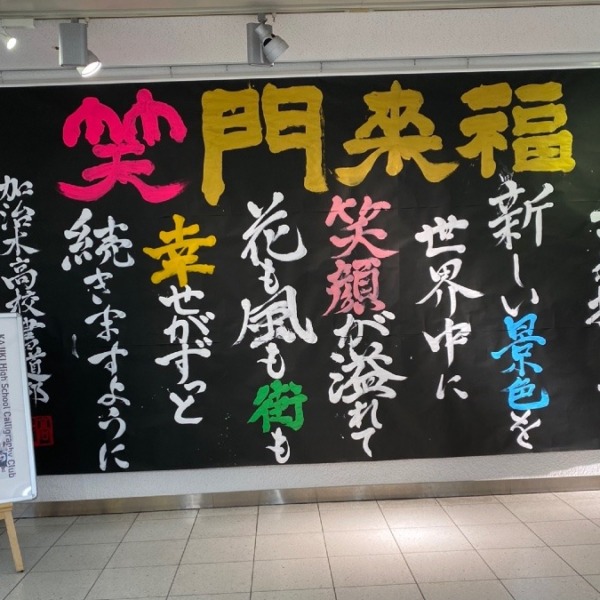 笑門来福
新しい景色を
世界中に
笑顔が溢れて
花も風も街も
幸せがずっと
続きますように
加治木高校書道部
KAJIKI High School Calligraphy Club